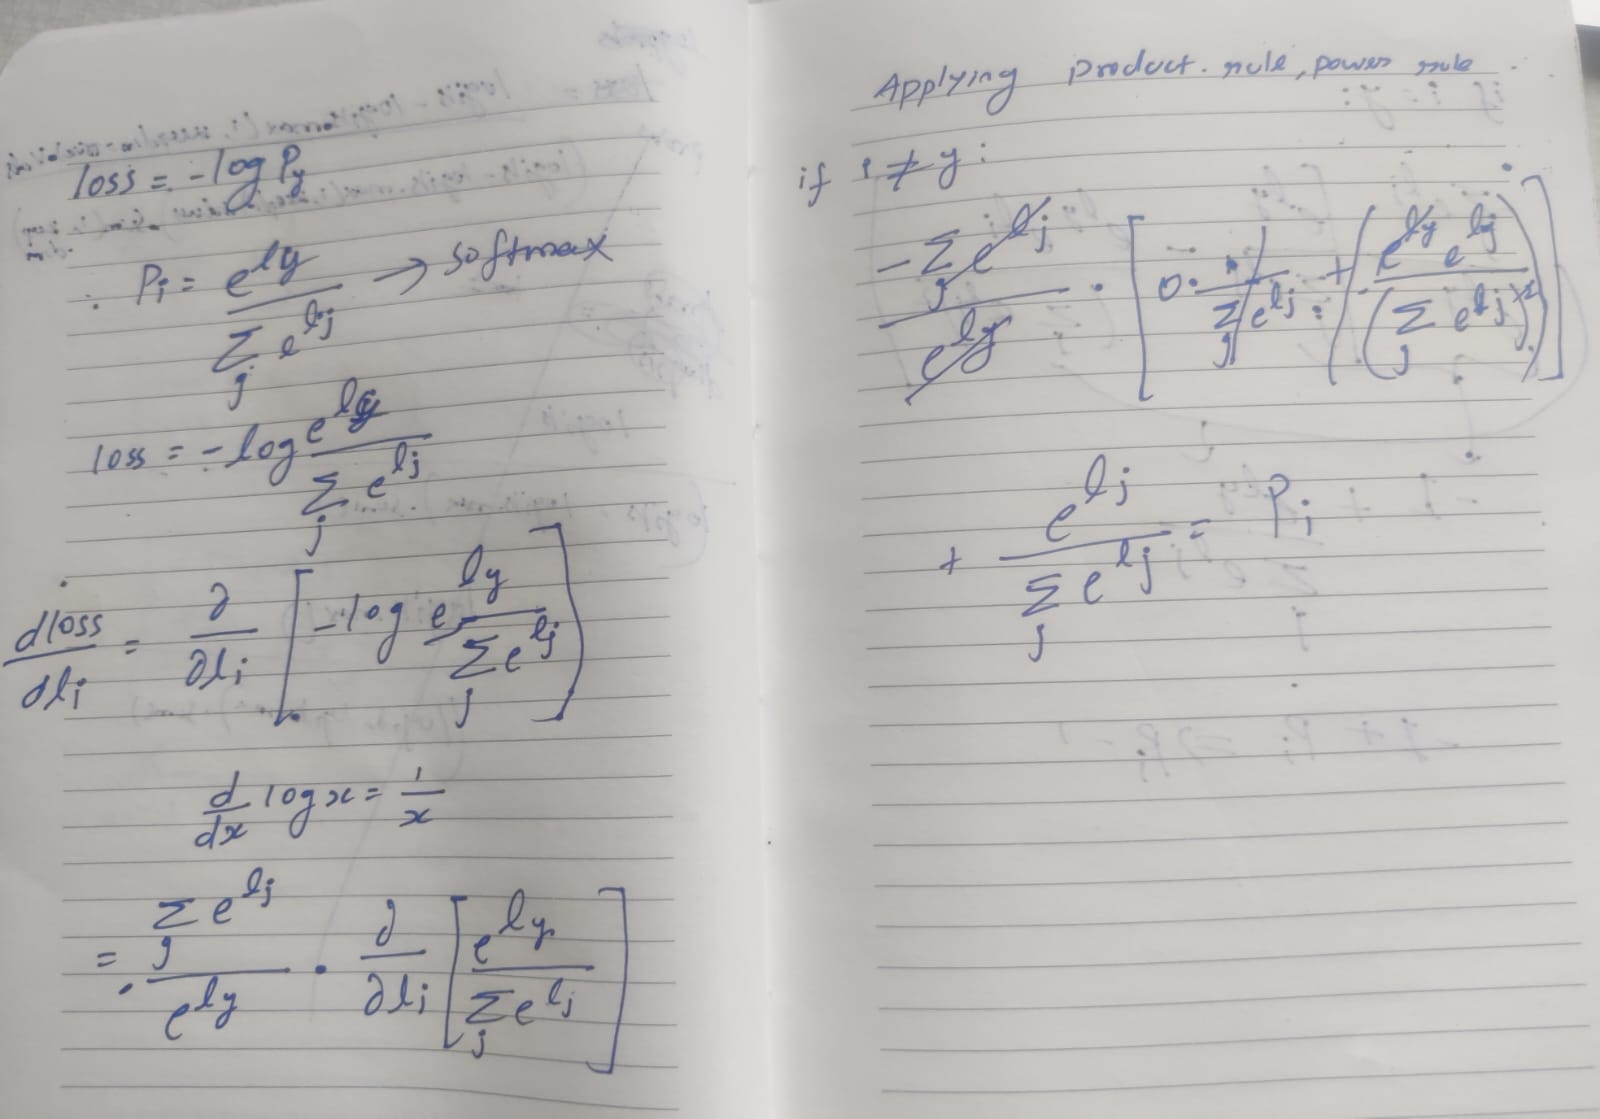 loss = -log Py
∴ Pi = e^ly / Σj e^lj → softmax
loss = -log e^ly / Σj e^lj
dloss / dli = ∂/∂li [ -log e^ly / Σj e^lj ]
d/dx log x = 1/x
= Σj e^lj / e^ly · ∂/∂li [ e^ly / Σj e^lj ]
Applying product rule, power rule
if i ≠ y:
-Σj e^lj / e^ly · [ 0 · 1 / Σj e^lj + ( - e^ly e^lj / (Σj e^lj)^2 ) ]
+ e^lj / Σj e^lj = Pi